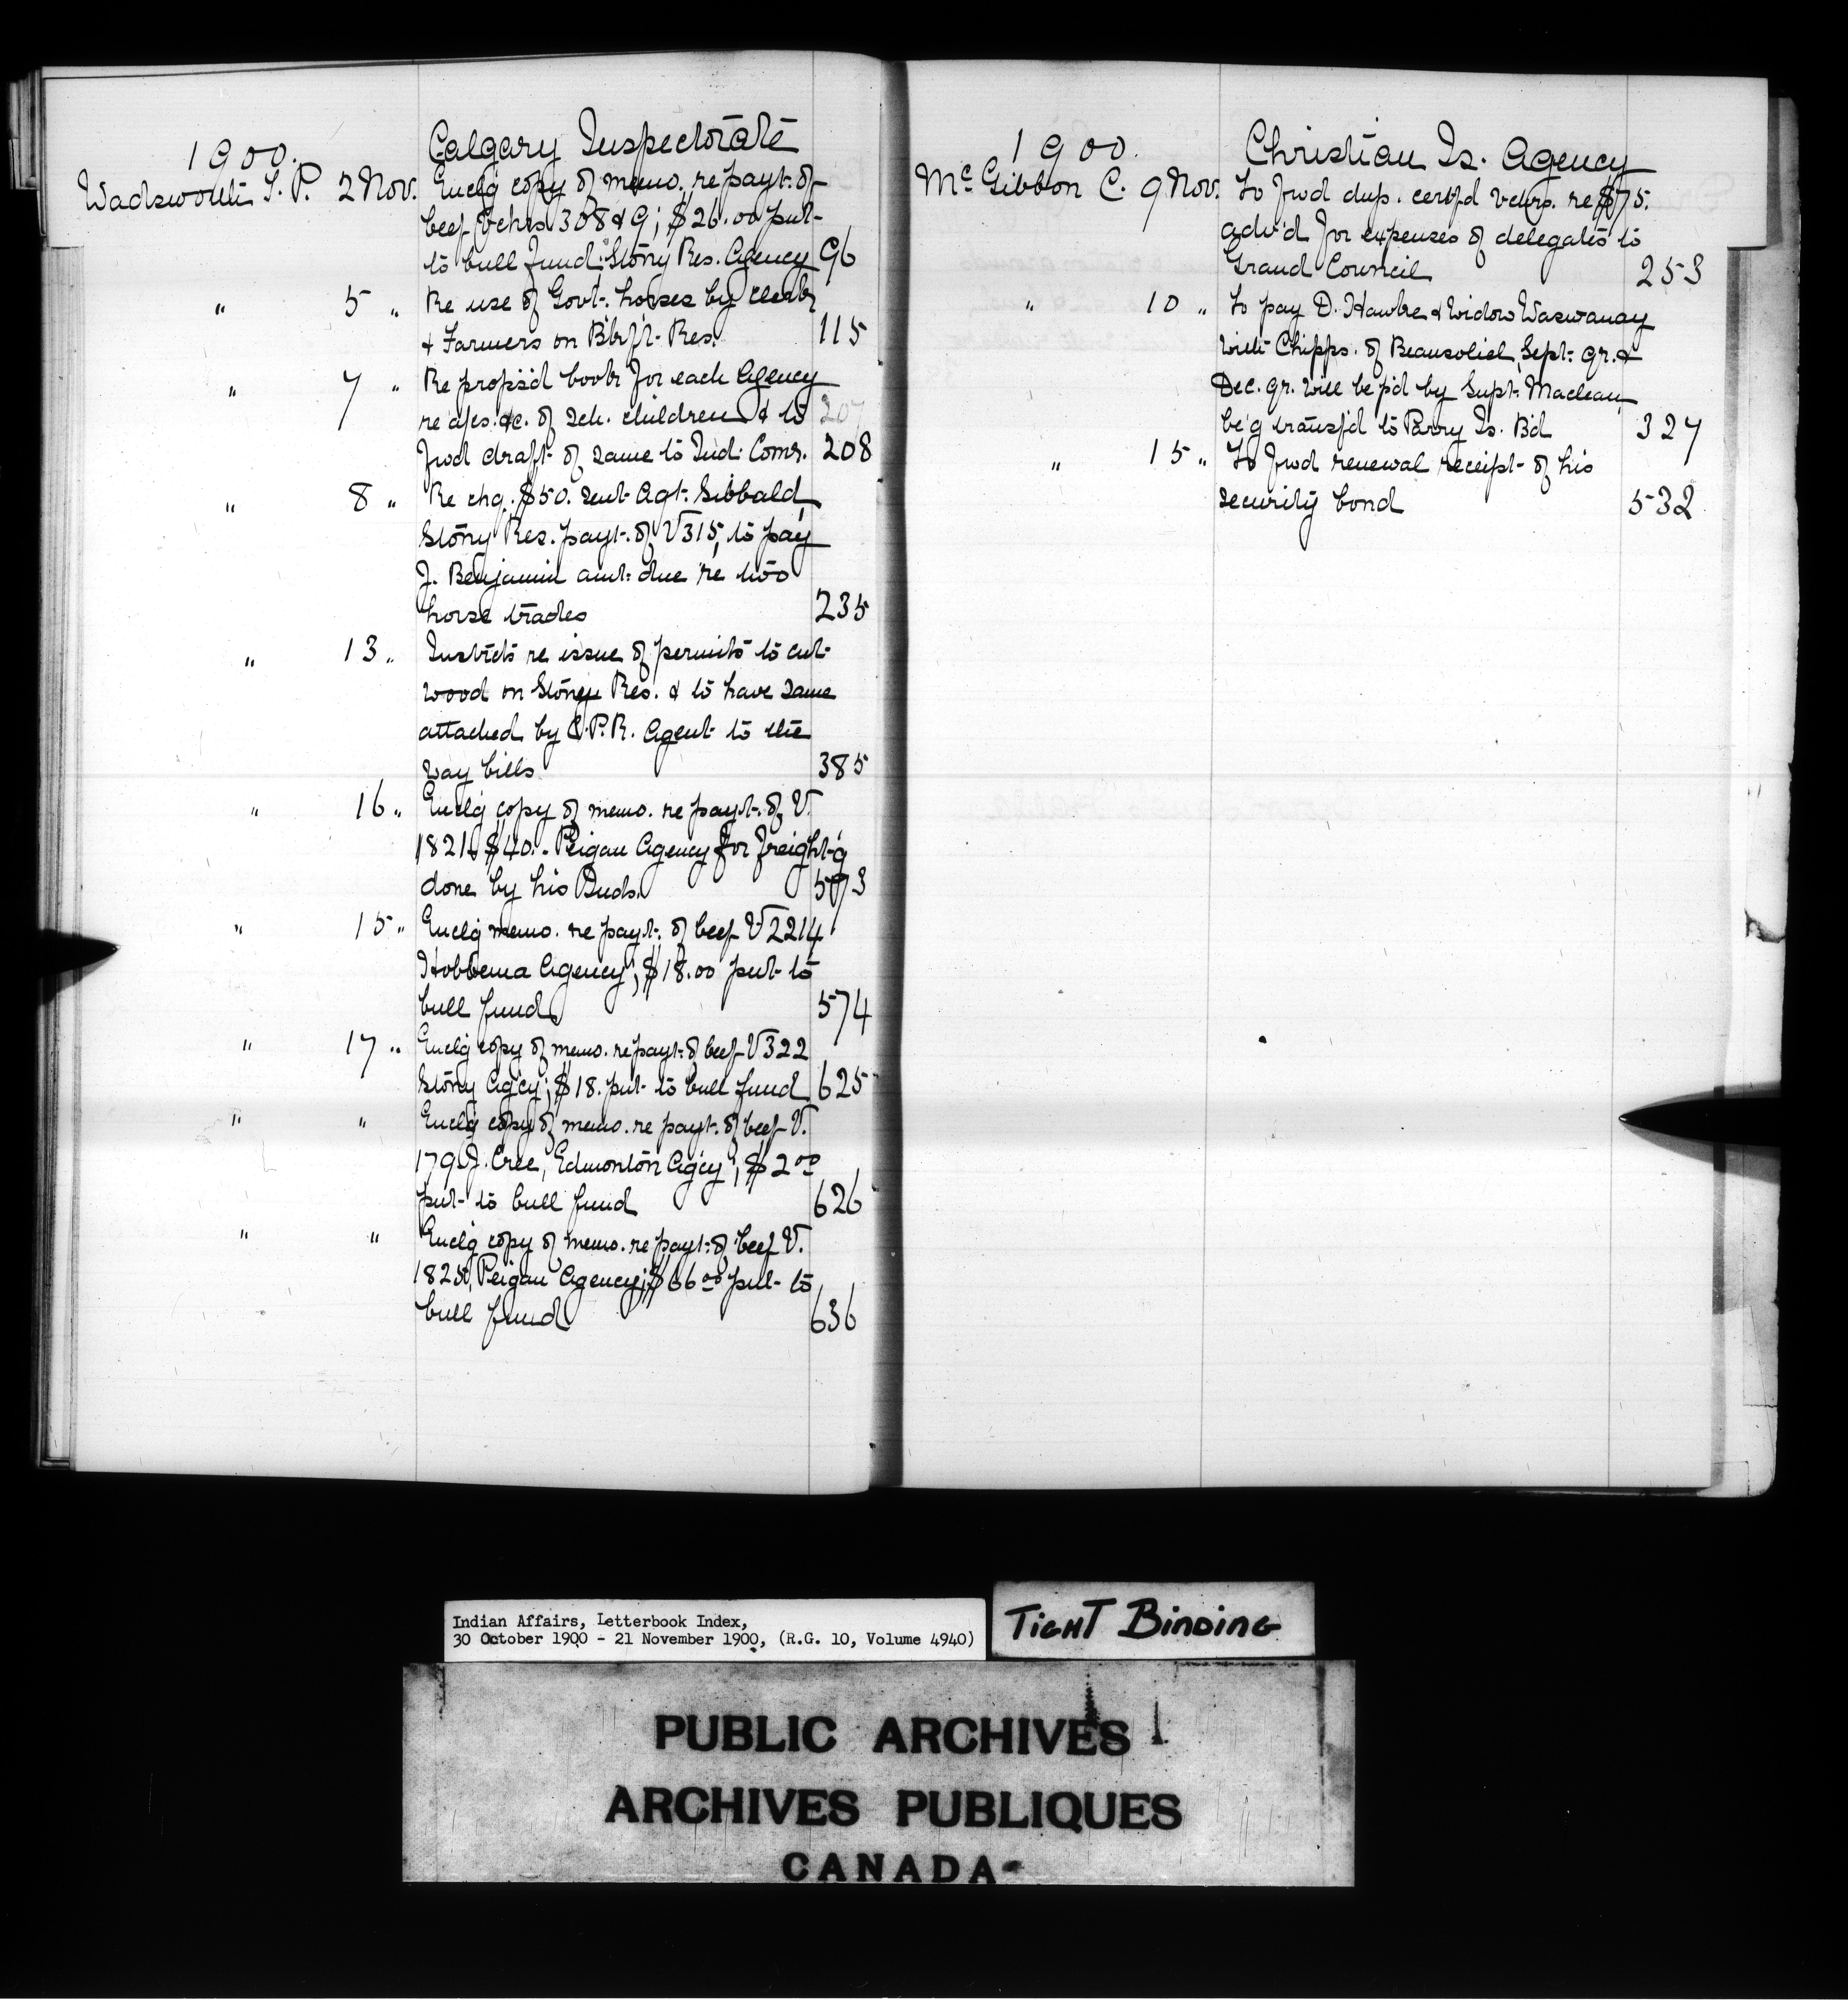 1900.
Calgary Inspectorate
Wadsworth T. P. 2 Nov. Enclg copy of memo. re payt. of
beef vchrs 308 & 9; $26.00 put
to bull fund Stony Res. Agency 96
" 5 " Re use of Govt. horses by clerks
& Farmers on Blkft. Res. 115
" 7 " Re propos'd book for each Agency
re ages. &c. of sch. children & to 207
fwd draft of same to Ind. Comr. 208
" 8 " Re chq. $50. sent Agt. Sibbald,
Stony Res. payt. of V 315, to pay
J. Benjamin amt. due re two
horse trades 235
" 13 " Instrcts re issue of permits to cut
wood on Stoney Res. & to have same
attached by C.P.R. Agent to the
way bills 385
" 16 " Enclg copy of memo. re payt. of V.
182 $40. Peigan Agency for freight-g
done by his Inds. 573
" 15 " Enclg memo. re payt. of beef V 2214
Hobbema Agency; $18.00 put to
bull fund 574
" 17 " Enclg copy of memo. re payt. of beef V 322
Stony Agcy; $18. put to bull fund 625
" " Enclg copy of memo. re payt. of beef V.
179 J. Cree, Edmonton Agcy; $2 00
put to bull fund 626
" " Enclg copy of memo. re payt. of beef V.
Peigan Agency; $66 00 put to
bull fund 636
1900.
Christian Is. Agency
McGibbon C. 9 Nov. To fwd dup. certf'd vchrs. re $75.
adv'd for expenses of delegates to
Grand Council 253
" 10 " To pay D. Hawke & widow Waswanay
with Chipps. of Beausoliel, Sept. qr. &
Dec. qr. will be p'd by Supt. Maclean,
be'g transf'd to Parry Is. Bd 327
" 15 " To fwd renewal receipt of his
security bond 532
Indian Affairs, Letterbook Index,
30 October 1900 - 21 November 1900, (R.G. 10, Volume 4940)
TIGHT BINDING
PUBLIC ARCHIVES
ARCHIVES PUBLIQUES
CANADA